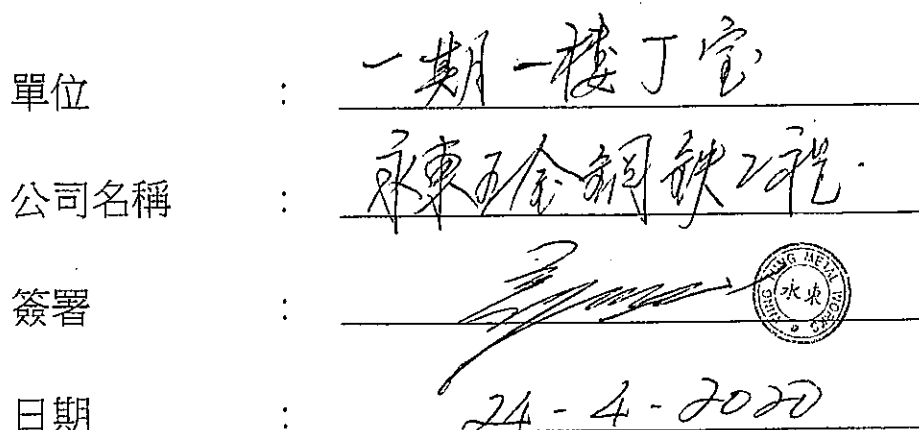 單位 : 一期一樓丁室
公司名稱 : 永東五金鋼鉄工程
簽署 :
TUNG METAL WORKS
永東
日期 : 24-4-2020